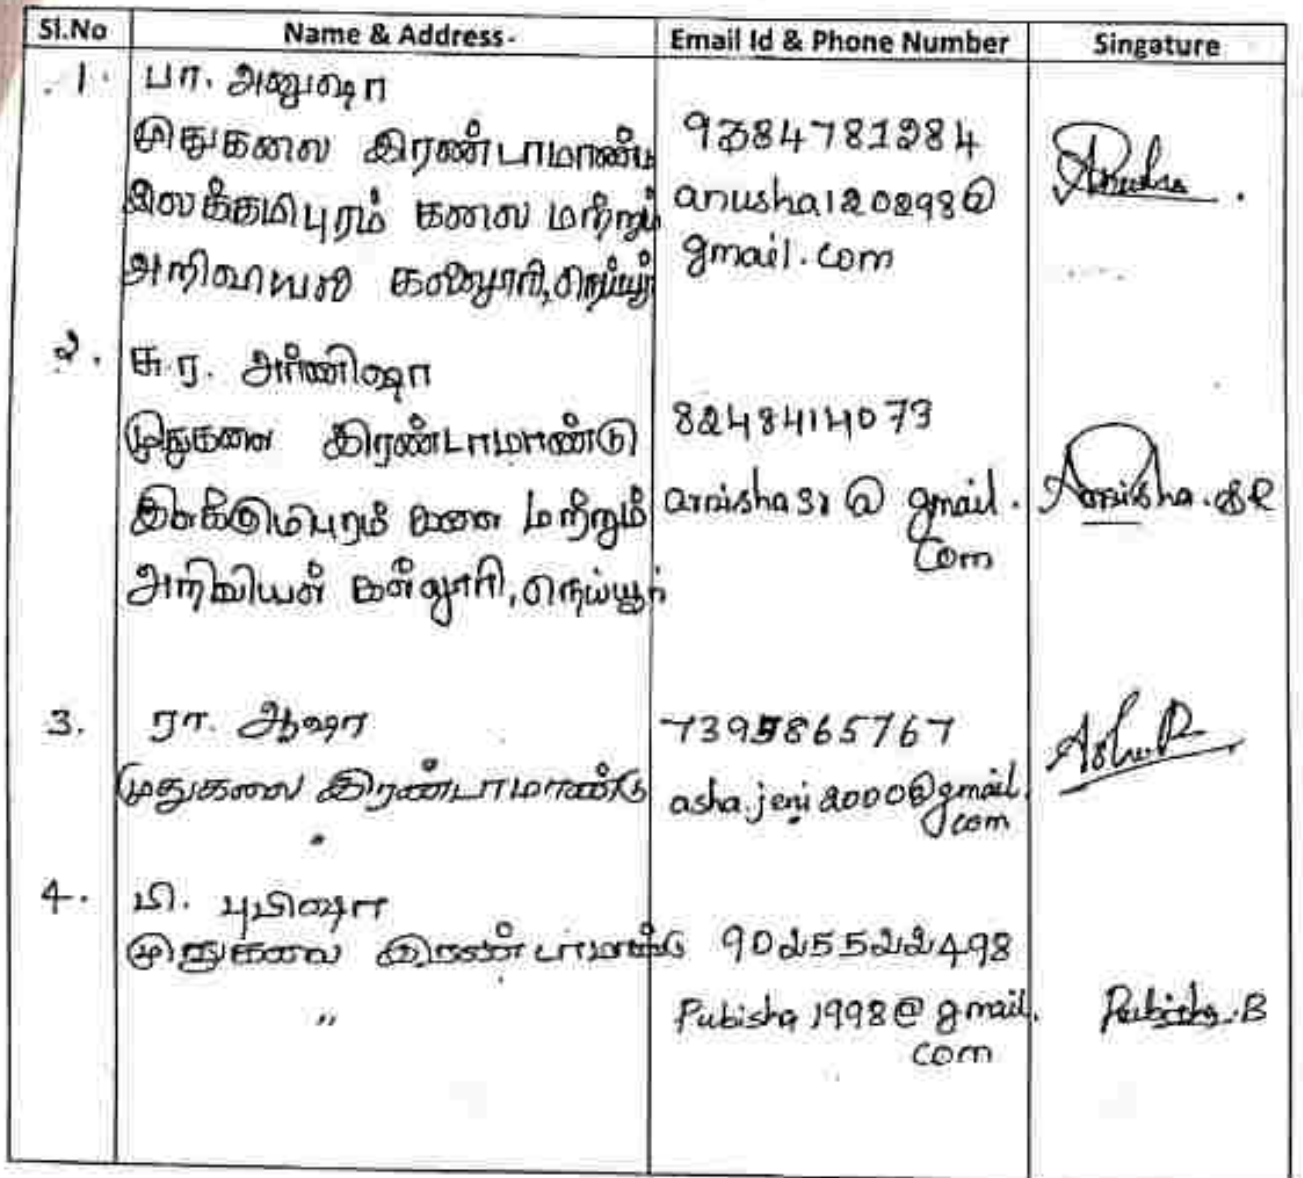 Sl.No Name & Address- Email Id & Phone Number Singature
1. பா. அனுஷா
முதுகலை இரண்டாமாண்டு
இலக்கமிபுரம் கலை மற்றும்
அறிவியல் கல்லூரி, நெய்யூர்
9384781284
anusha120298@
gmail.com
Anusha.
2. சு.ர. அர்னிஷா
முதுகலை இரண்டாமாண்டு
இலக்குமிபுரம் கலை மற்றும்
அறிவியல் கல்லூரி, நெய்யூர்
8248414073
arnisha31@gmail.
com
Arnisha.SR
3. ரா. ஆஷா
முதுகலை இரண்டாமாண்டு
"
7395865767
asha.jeni2000@gmail.
com
Asha R
4. பி. புபிஷா
முதுகலை இரண்டாமாண்டு
"
9025522498
Pubisha1998@gmail.
com
Pubisha.B